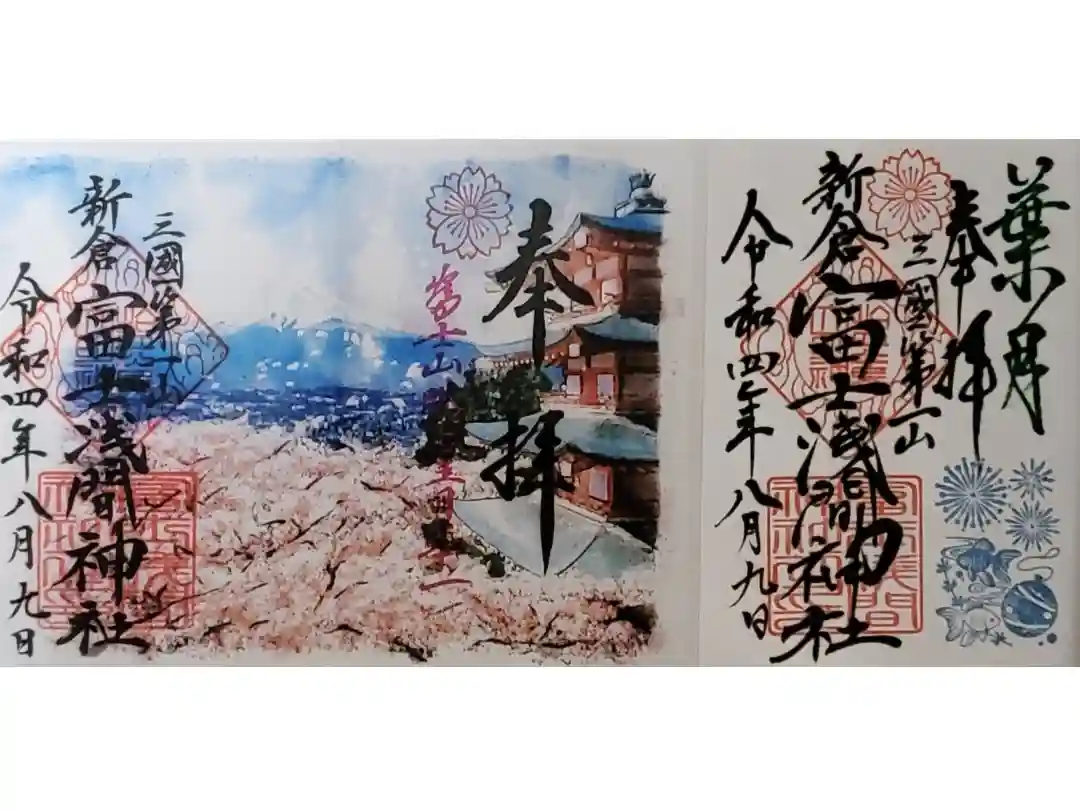 葉月
奉拝
三國第一山
新倉富士浅間神社
令和四年八月九日
奉拝
富士山
三國第一山
新倉富士浅間神社
令和四年八月九日